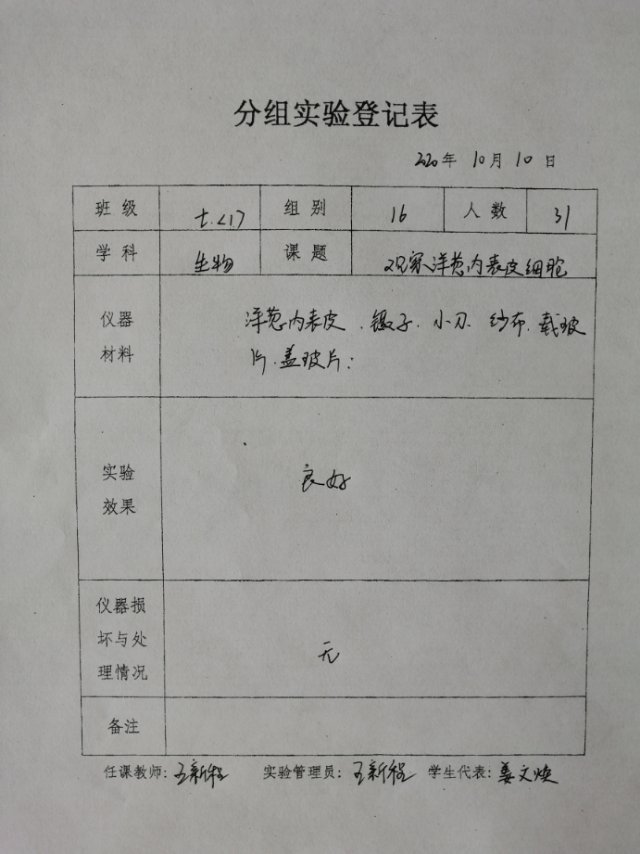 分组实验登记表
2020年 10月 10日
班级 七.<17 组别 16 人数 31
学科 生物 课题 观察洋葱内表皮细胞
仪器
材料
洋葱内表皮.镊子.小刀.纱布.载玻
片.盖玻片:
实验
效果
良好
仪器损
坏与处
理情况
无
备注
任课教师:王新程 实验管理员:王新程 学生代表:姜文焕